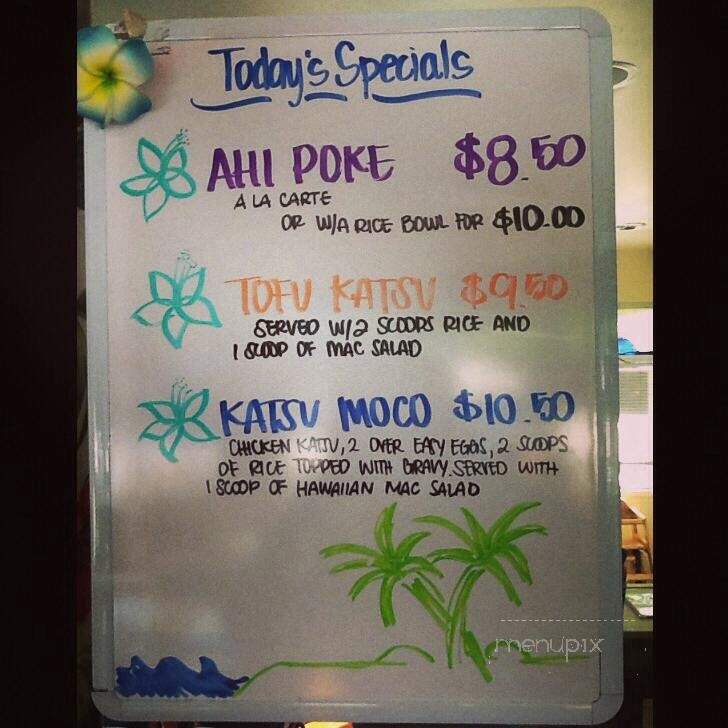 Today's Specials
AHI POKE $8.50
A LA CARTE
OR W/A RICE BOWL FOR $10.00
TOFU KATSU $9.50
SERVED W/2 SCOOPS RICE AND
1 SCOOP OF MAC SALAD
KATSU MOCO $10.50
CHICKEN KATSU, 2 OVER EASY EGGS, 2 SCOOPS
OF RICE TOPPED WITH GRAVY. SERVED WITH
1 SCOOP OF HAWAIIAN MAC SALAD
menupix